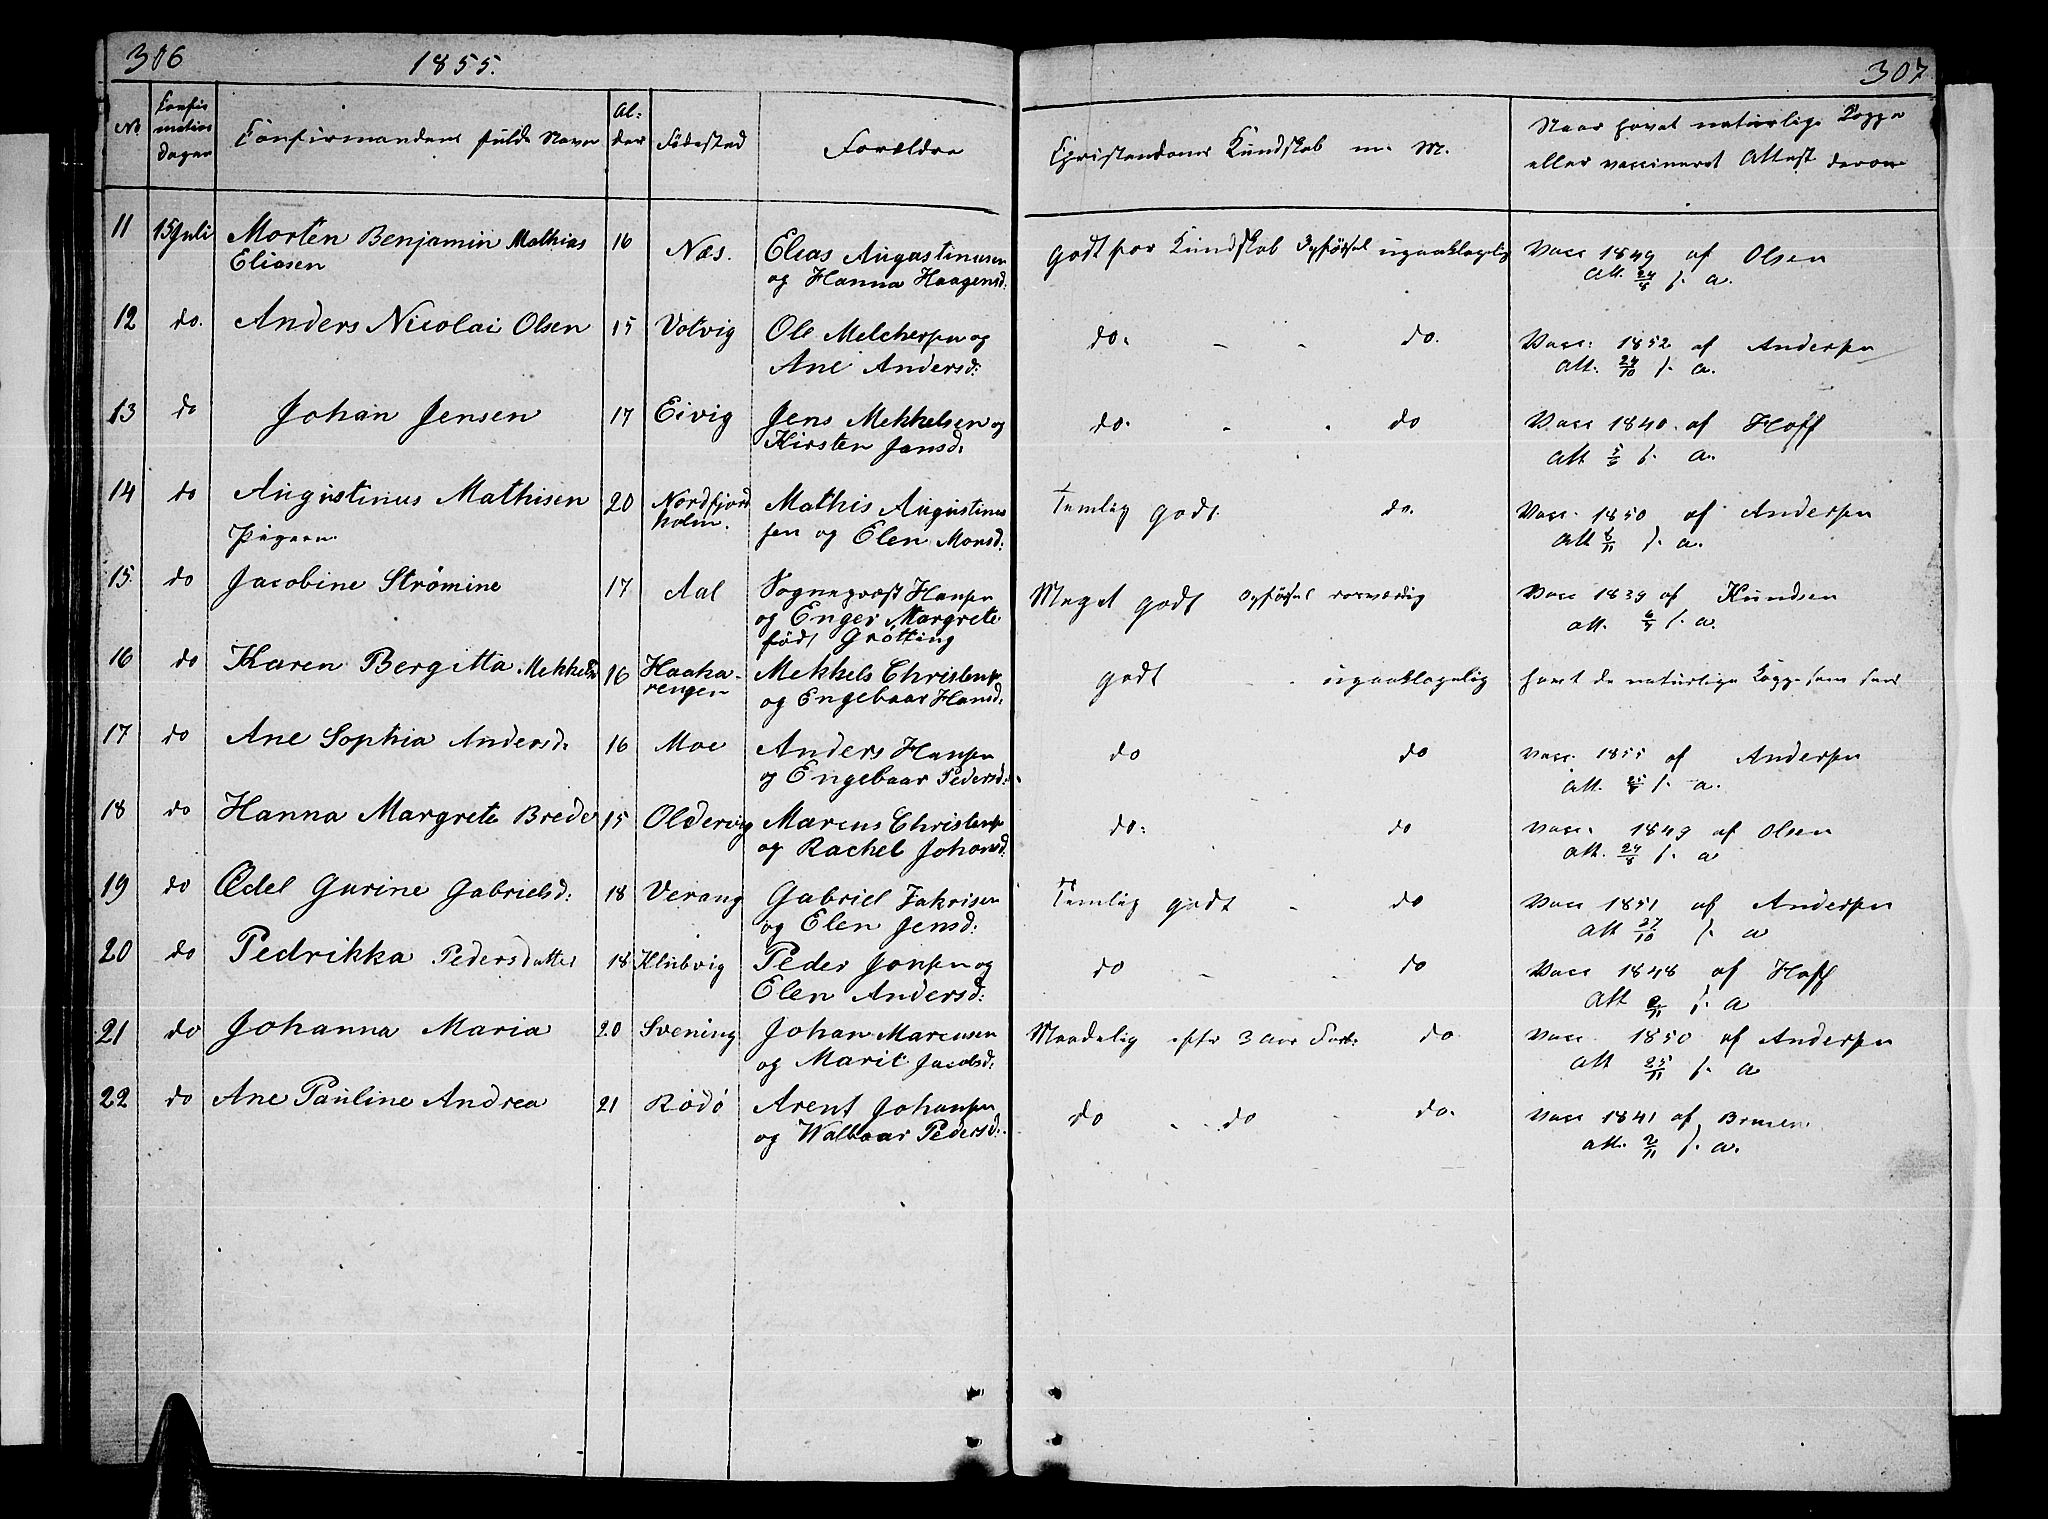 306 1855. 307
No Confirmations Dagen Confirmandens fulde Navn Alder Fødested Forældre Christendoms Kundskab m. M. Naar havt naturlige Kopper
eller vaccineret Attest derom
11 15 Juli Morten Benjamin Mathias 16 Næs. Elias Augustinusen godt for Kundskab Opførsel upaaklagelig Vacc 1849 af Olsen
Eliasen og Hanna Haagensd: Att. 24/8 s. a.
12 do. Anders Nicolai Olsen 15 Votvig Ole Melchersen og do. - - do. Vacc: 1852 af Andersen
Ane Andersd: Att. 24/10 s. a.
13 do Johan Jensen 17 Eivig Jens Mekkelsen og do. - . do Vacc 1840. af Hoff
Kirsten Jansd: Att s. a.
14 do Augustinus Mathisen 20 Nordfjord Mathis Augustinus Temlig godt do. Vacc. 1850 af Andersen
holm. sen og Elen Monsd: Att 6/11 s. a.
15. do Jacobine Strømine 17 Aal Sogneprest Hansen Meget godt Opførsel rosværdig Vacc 1839 af Knudsen
og Enger Margrete att. s. a.
født Grøtting
16 do Karen Bergitta Mekkelsd 16 Haaka- Mekkels Christens. godt - . upaaklagelig havt de naturlige Kopper som
rengen og Engebaar Hansd:
17 do Ane Sophia Andersd: 16 Moe Anders Hansen do do vacc. 1855 af Andersen
og Engebaar Pedersd: Att. s. a.
18 do Hanna Margrete Brede 15 Oldervig Marcus Christens. do: do vacc. 1849 af Olsen
og Rachel Johansd: Att. 24/8 s. a
19 do Ædel Gurine Gabrielsd: 18 Verang Gabriel Zakrisen Temlig godt - do Vacc 1851 af Andersen
og Elen Jensd: Att 27/10 s. a
20 do Pedrikka Pedersdatter 18 Klubvig Peder Jonsen og do - . do Vacc 1848 af Hoff
Elen Andersd: Att s. a
21 do Johanna Maria 20 Svening Johan Marcusen Maadelig efter 3 Aar do vacc 1850 af Andersen
og Marit Jacobsd: Att 25/11 s. a
22 do Ane Pauline Andrea 21 Rødø Arent Johansen do - . do . do. vacc 1841 af
og Walbaar Pedersd: att. 2/11 s. a.